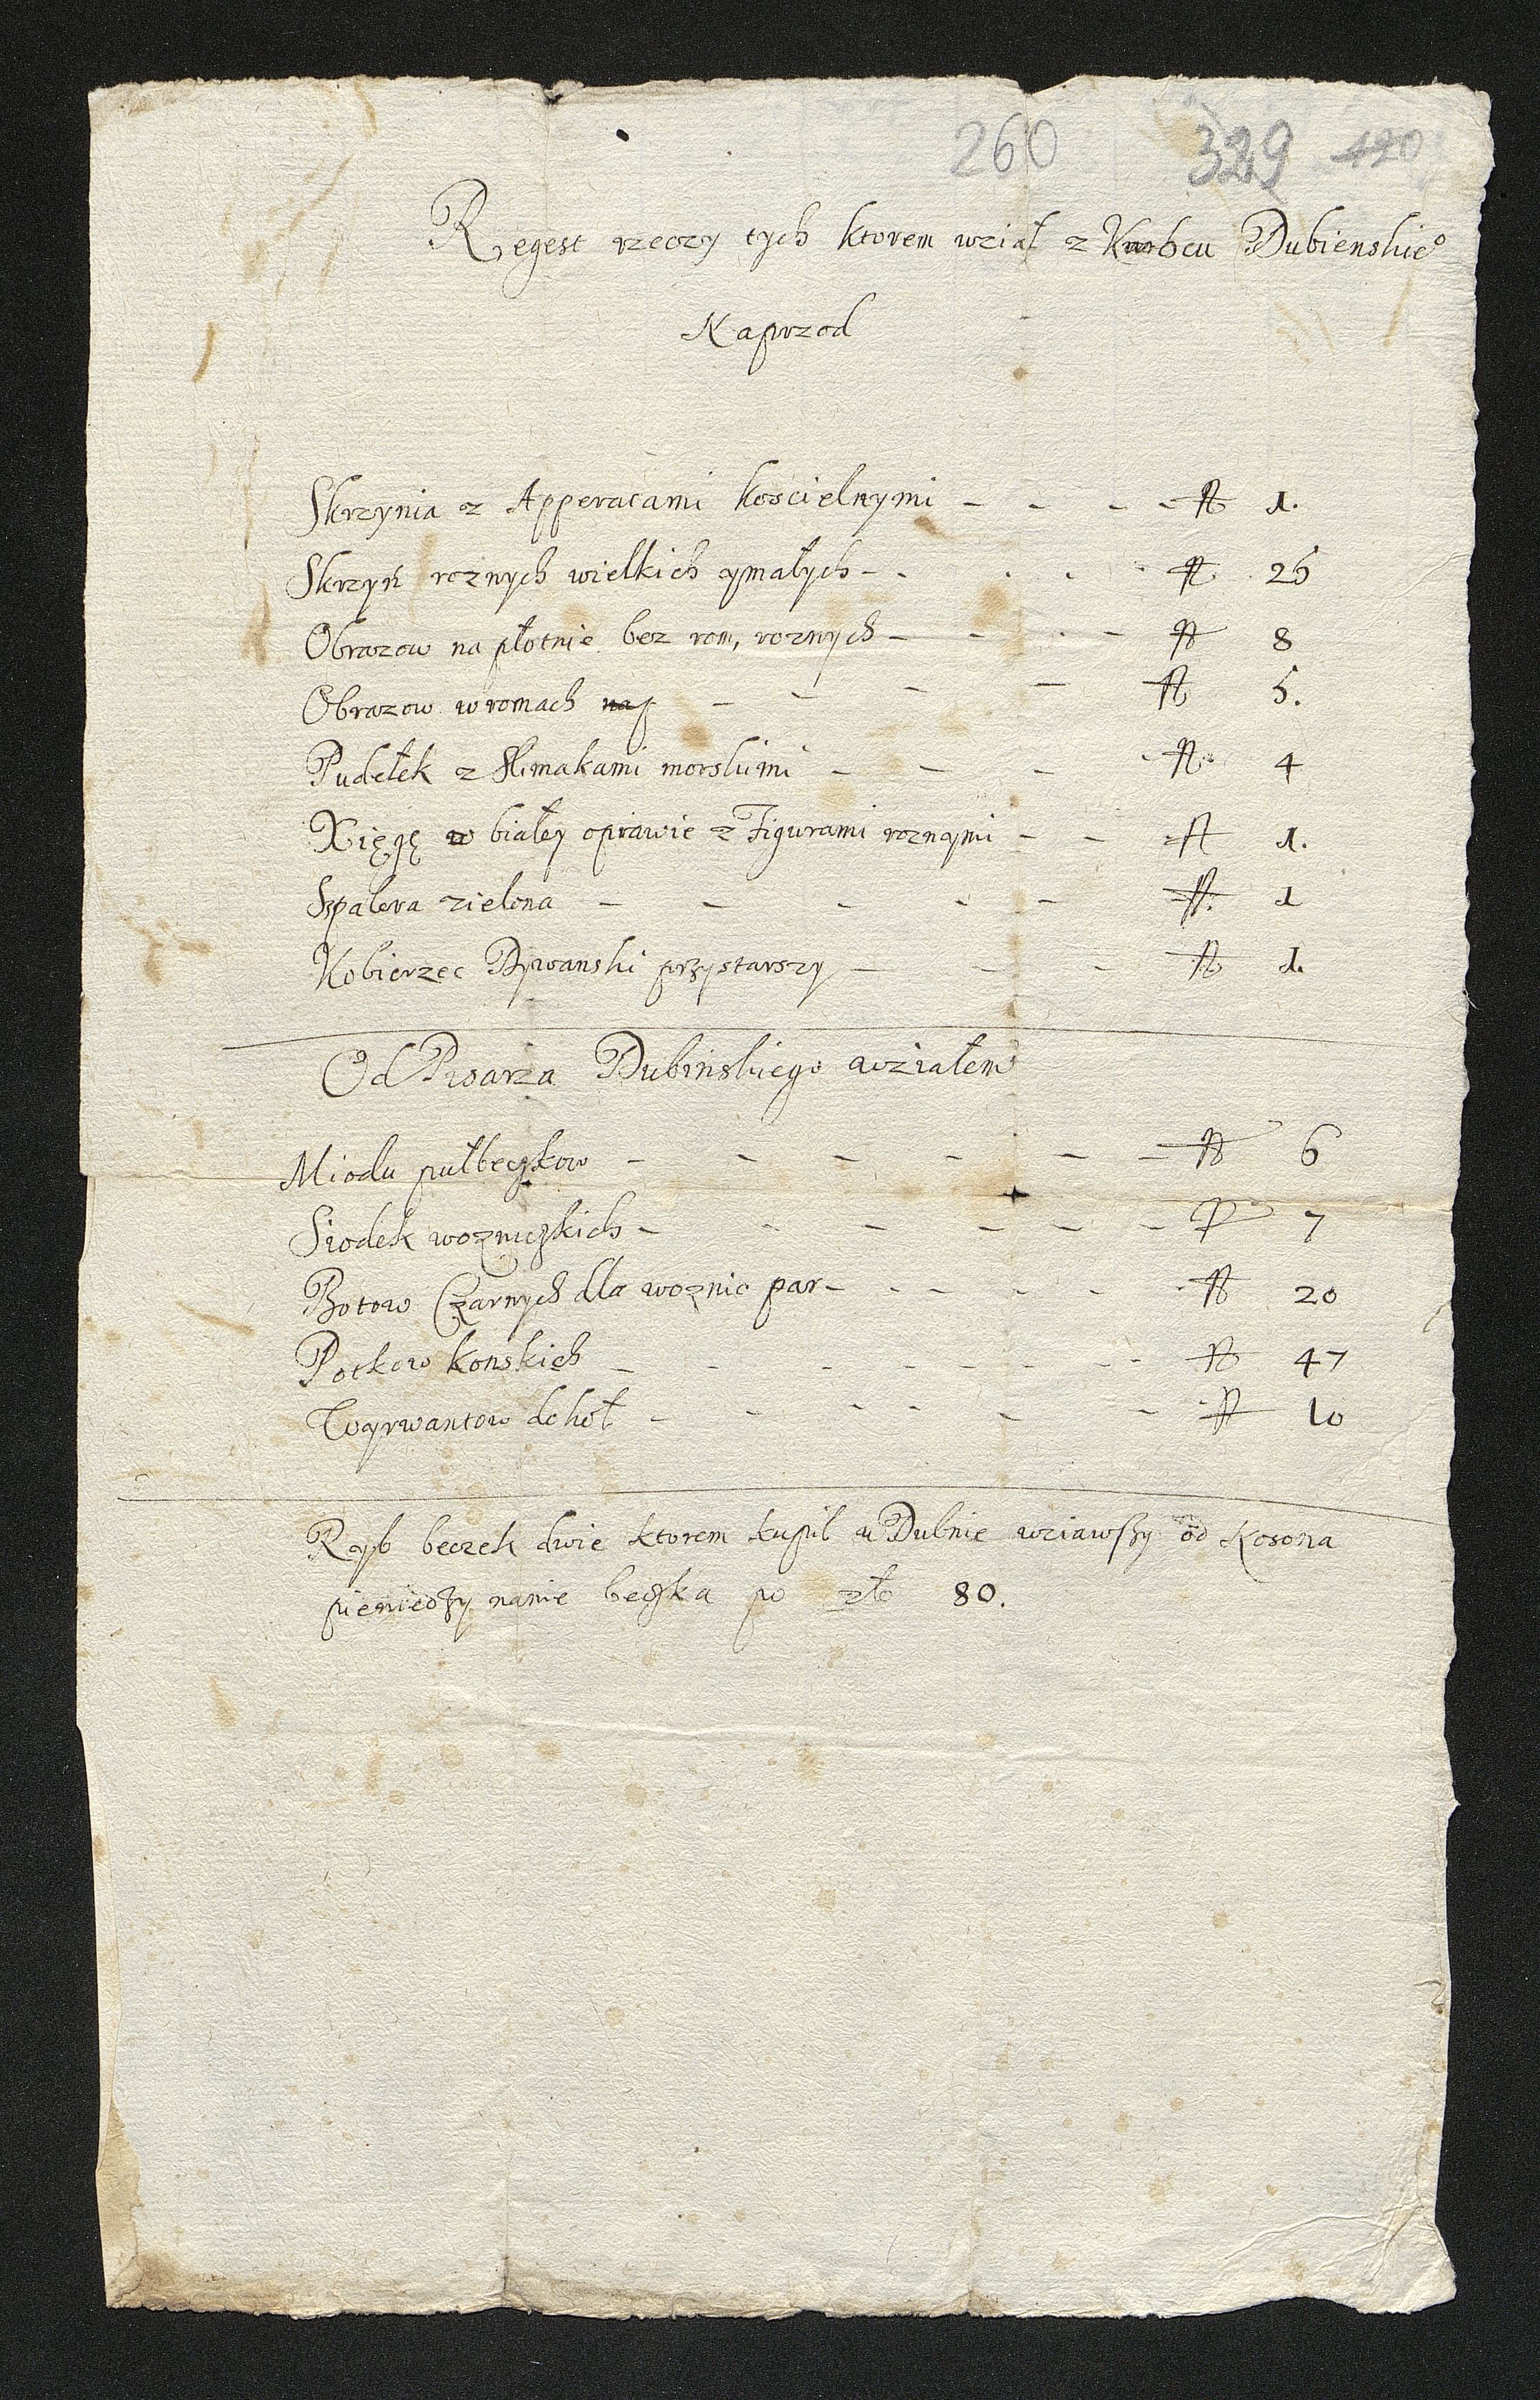 260 329 420
Regest rzeczy tych ktorem wział z Dubienskieº
Naprzod
Skrzynia z Apperatami koscielnymi - - - - № 1.
Skrzyń roznych wielkich ymałych - - - - - № 25
Obrazow na płotnie bez rom, roznych - - - - № 8
Obrazow w romach - - - - № 5.
Pudełek z Slimakami morskimi - - - № 4
Xięgę w białey oprawie z Figurami roznymi - - № 1.
Szpalera zielona - - - - - № 1
Kobierzec Dywanski przystarszy - - - № 1.
Od Pisarza Dubinskiego wziałem
Miodu pułbeczkow - - - - - - № 6
Siodek wozniczkich - - - - - - № 7
Botow Czarnych dla woznic par - - - - - - № 20
Potkow konskich - - - - - - - - № 47
do koł - - - - - - - № 10
Ryb beczek dwie ktorem kupił w Dubnie wziawszy od Kosona
pieniedzy nanie beczka po zło 80.